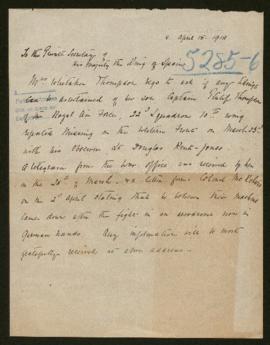 April 15. 1918
To the Private Secretary of
His Majesty the King of Spain
5285-6
Mrs Whitaker Thompson begs to ask if any thing
can be ascertained of her son Captain Philip Thompson
of the Royal Air Force, 22nd Squadron 10th wing
reported Missing on the Western Front on March 23rd
with his observer Lt Douglas Kent-Jones
A telegram from the War Office was received by her
on the 26th of March. & a letter from Colonel
on the 2nd April stating that to believe their machine
came down after the fight in an aerodrome now in
German hands. Any information will be most
gratefully received at above address.